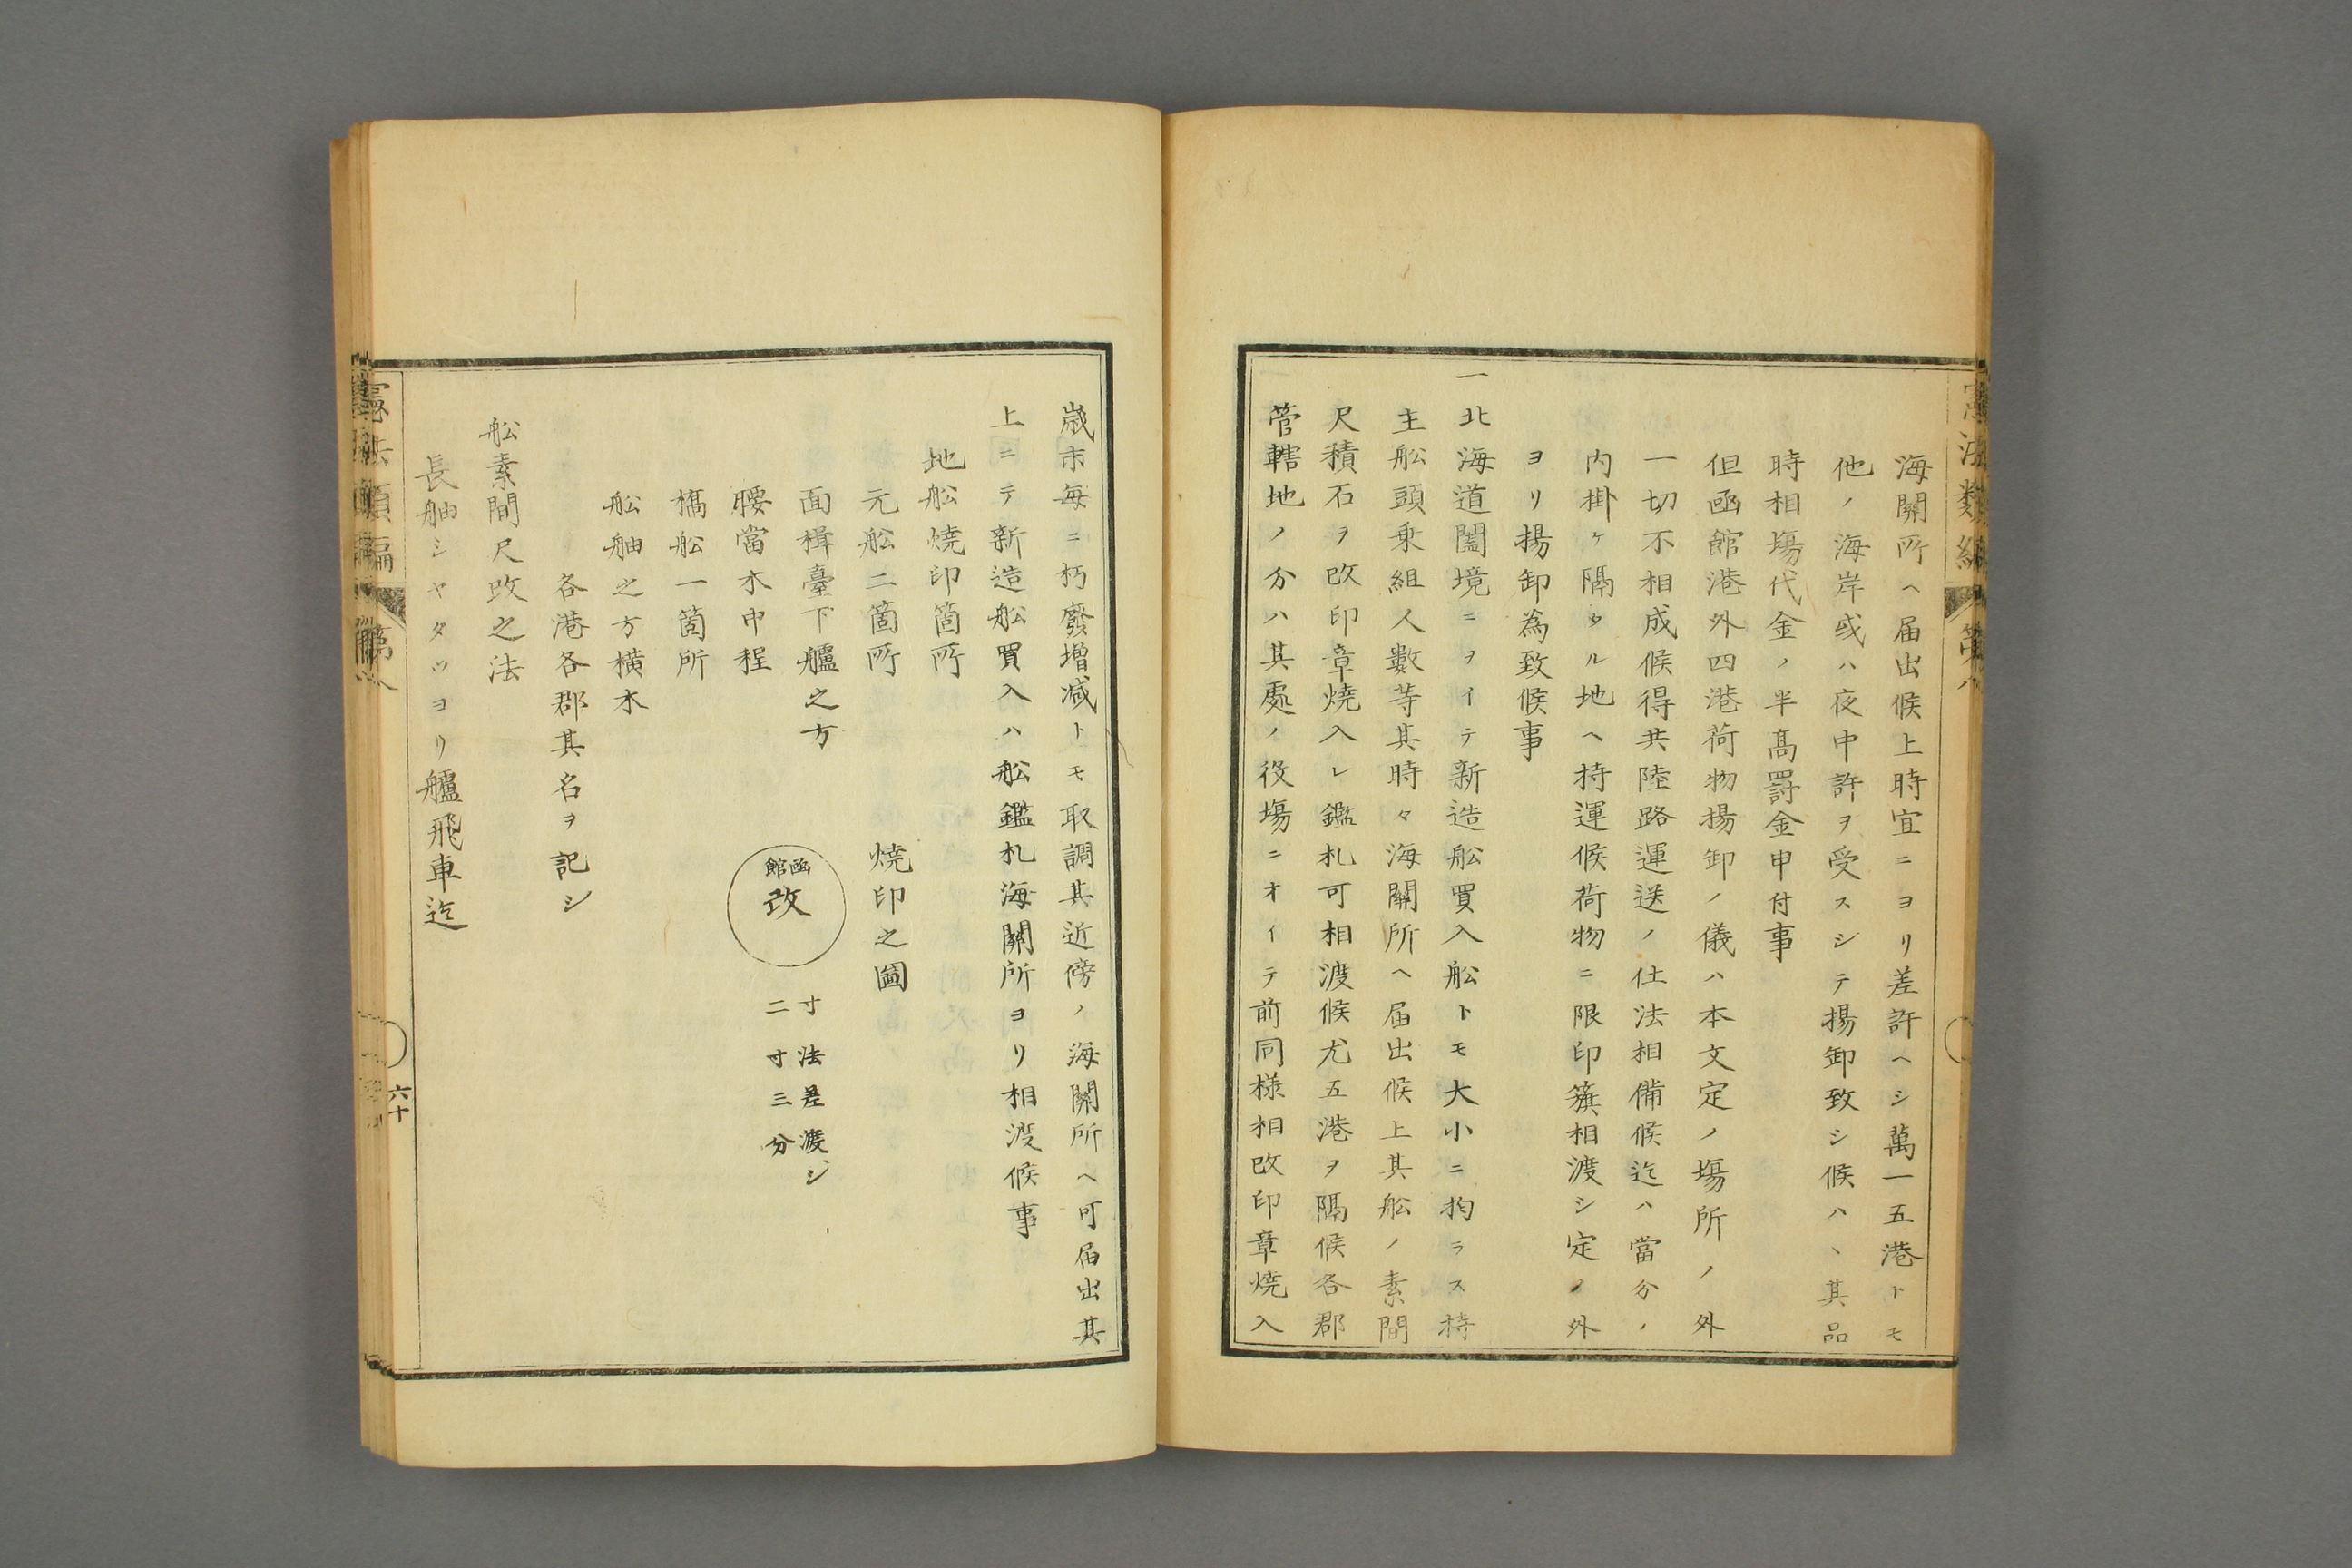 海關所ヘ届出候上時宜ニヨリ差許ヘシ萬一五港トモ
他ノ海岸或ハ夜中許ヲ受スシテ揚卸致シ候ハヽ其品
時相塲代金ノ半髙罸金申付事
但凾館港外四港荷物揚卸ノ儀ハ本文定ノ塲所ノ外
一切不相成候得共陸路運送ノ仕法相備候迄ハ當分ノ
内掛ケ隔タル地ヘ持運候荷物ニ限印籏相渡シ定ノ外
ヨリ揚卸為致候事
一北海道闔境ニヲイテ新造舩買入舩トモ大小ニ拘ラス持
主舩頭乗組人數等其時々海關所ヘ届出候上其舩ノ素間
尺積石ヲ改印章焼入レ鑑札可相渡候尤五港ヲ隔候各郡
管轄地ノ分ハ其處ノ役塲ニオイテ前同様相改印章焼入
歳末毎ニ朽廢増减トモ取調其近傍ノ海關所ヘ可届出其
上ニテ新造舩買入ハ舩鑑札海關所ヨリ相渡候事
地舩焼印箇所
元舩二箇所
焼印之圖
面楫臺下艫之方
腰當木中程
凾館
改
寸法差渡シ
二寸三分
橋舩一箇所
舩舳之方横木
各港各郡其名ヲ記シ
舩素間尺改之法
長舳シヤタツヨリ艫飛車迄
憲法類編
第八
六十